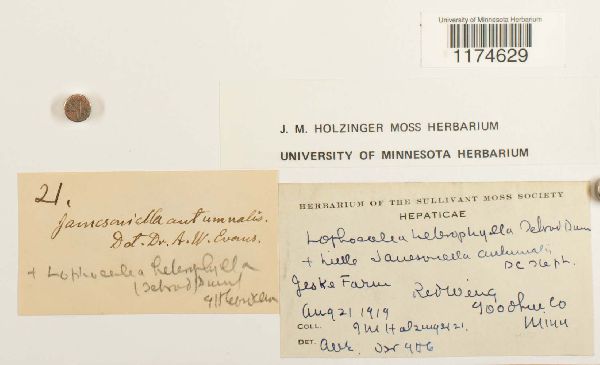 University of Minnesota Herbarium
1174629
J. M. HOLZINGER MOSS HERBARIUM
UNIVERSITY OF MINNESOTA HERBARIUM
21.
Jamesoniella autumnalis.
Det. Dr. A. W. Evans.
+ Lophocolea heterophylla
(Schrad) Dum
HERBARIUM OF THE SULLIVANT MOSS SOCIETY
HEPATICAE
Lophocolea heterophylla Schrad Dum
+ little Jamesoniella autumnalis
DC Steph.
Jeske Farm Red Wing Goodhue Co
Aug 21 1919 Minn
COLL. J M Holzinger 21.
DET.